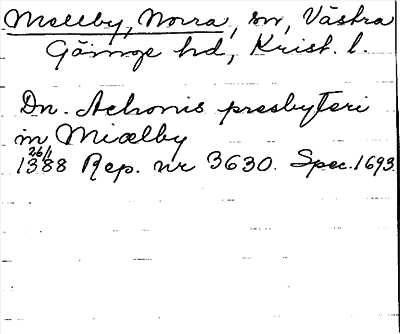 Mellby, Norra, sn, Västra
Göinge hd, Krist. l.
Dn. Achonis presbyteri
in Miælby
26/1
1388 Rep. nr 3630. Spec. 1693.